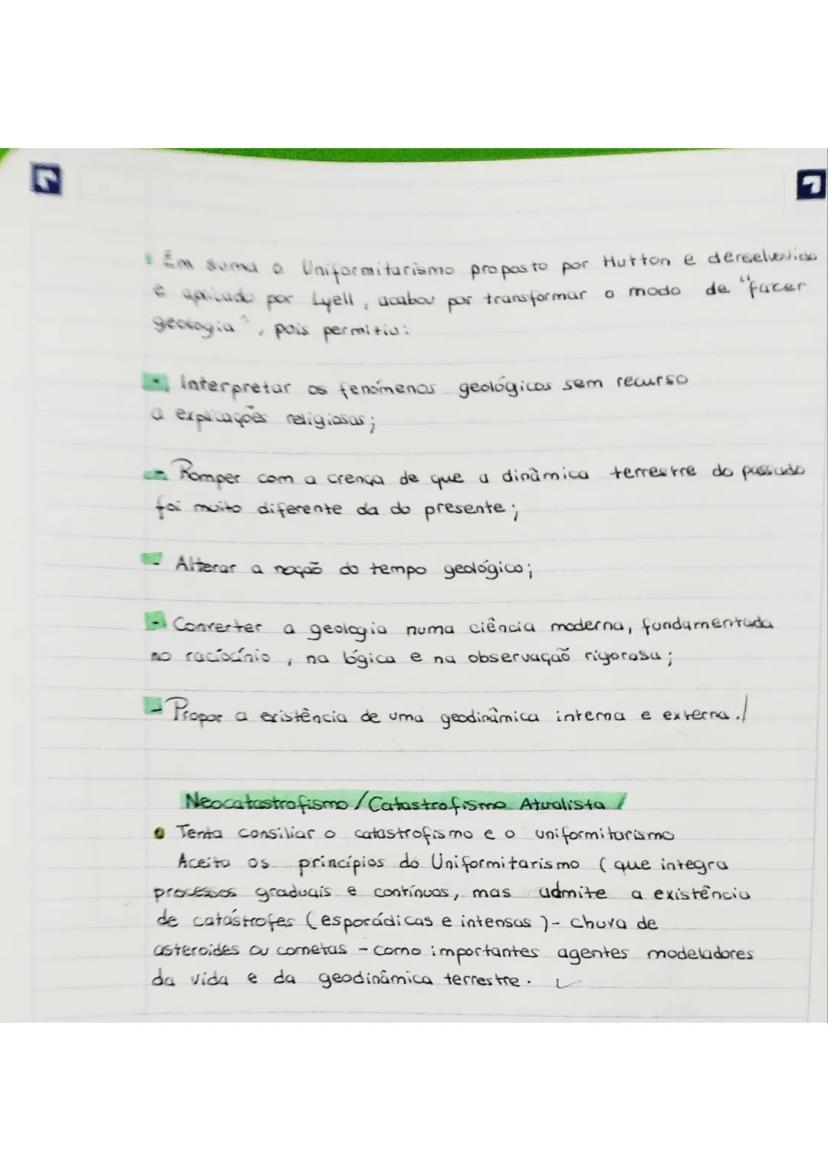 • Em suma o Uniformitarismo proposto por Hutton e
e aplicado por Lyell, acabou por transformar o modo de "fazer
geologia", pois permitiu:
- Interpretar os fenómenos geológicos sem recurso
a explicações religiosas;
- Romper com a crença de que a dinâmica terrestre do passado
foi muito diferente da do presente;
- Alterar a noção do tempo geológico;
- Converter a geologia numa ciência moderna, fundamentada
no raciocínio, na lógica e na observação rigorosa;
- Propor a existência de uma geodinâmica interna e externa./
Neocatastrofismo/Catastrofismo Atualista/
• Tenta consiliar o catastrofismo e o uniformitarismo
Aceita os princípios do Uniformitarismo (que integra
processos graduais e contínuos, mas admite a existência
de catástrofes (esporádicas e intensas) - chuva de
asteroides ou cometas - como importantes agentes modeladores
da vida e da geodinâmica terrestre.